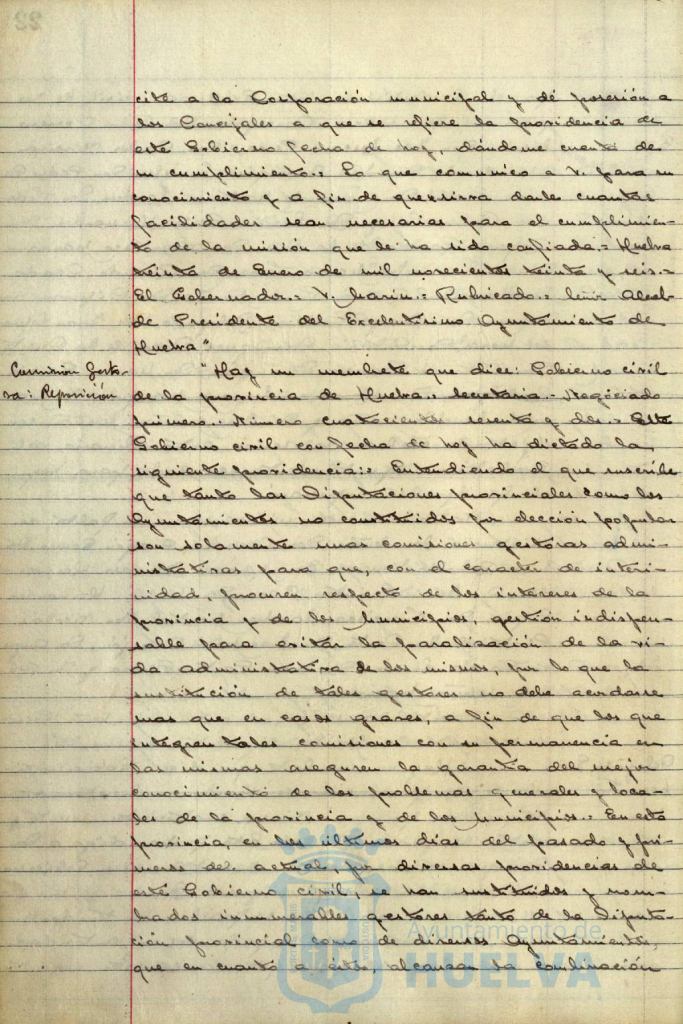 cite a la Corporación municipal y dé posesión a
los Concejales a que se refiere la providencia de
este Gobierno fecha de hoy, dándome cuenta de
su cumplimiento.= Lo que comunico a V. para su
conocimiento y a fin de que sirva darle cuantas
facilidades sean necesarias para el cumplimien-
to de la misión que le ha sido confiada.= Huelva
treinta de Enero de mil novecientos treinta y seis.=
El Gobernador.= V. Marin.= Rubricado.= Señor Alcal-
de Presidente del Excelentísimo Ayuntamiento de
Huelva"
Comisión Gesto-
ra: Reposición
"Hay un membrete que dice: Gobierno civil
de la provincia de Huelva.= Secretaria.- Negociado
primero.= Número cuatrocientos sesenta y dos.= Este
Gobierno civil con fecha de hoy ha dictado la
siguiente providencia:= Entendiendo el que suscribe
que tanto las Diputaciones provinciales como los
Ayuntamientos no constituidos por elección popular
son solamente unas comisiones gestoras admi-
nistrativas para que, con el caracter de interi-
nidad, procuren respecto de los intereses de la
provincia y de los Municipios, gestión indispen-
sable para evitar la paralización de la vi-
da administrativa de los mismos, por lo que la
sustitución de tales gestores no debe acordarse
mas que en casos graves, a fin de que los que
integren tales comisiones con su permanencia en
las mismas aseguren la garantia del mejor
conocimiento de los problemas generales y loca-
les de la provincia y de los Municipios.= En esta
provincia, en los últimos días del pasado y pri-
meros del actual, por diversas providencias de
este Gobierno civil, se han sustituidos y nom-
brados innumerables gestores tanto de la Diputa-
ción provincial como de diversos Ayuntamientos,
que en cuanto a éstos, alcanzan la combinación
Ayuntamiento de
HUELVA